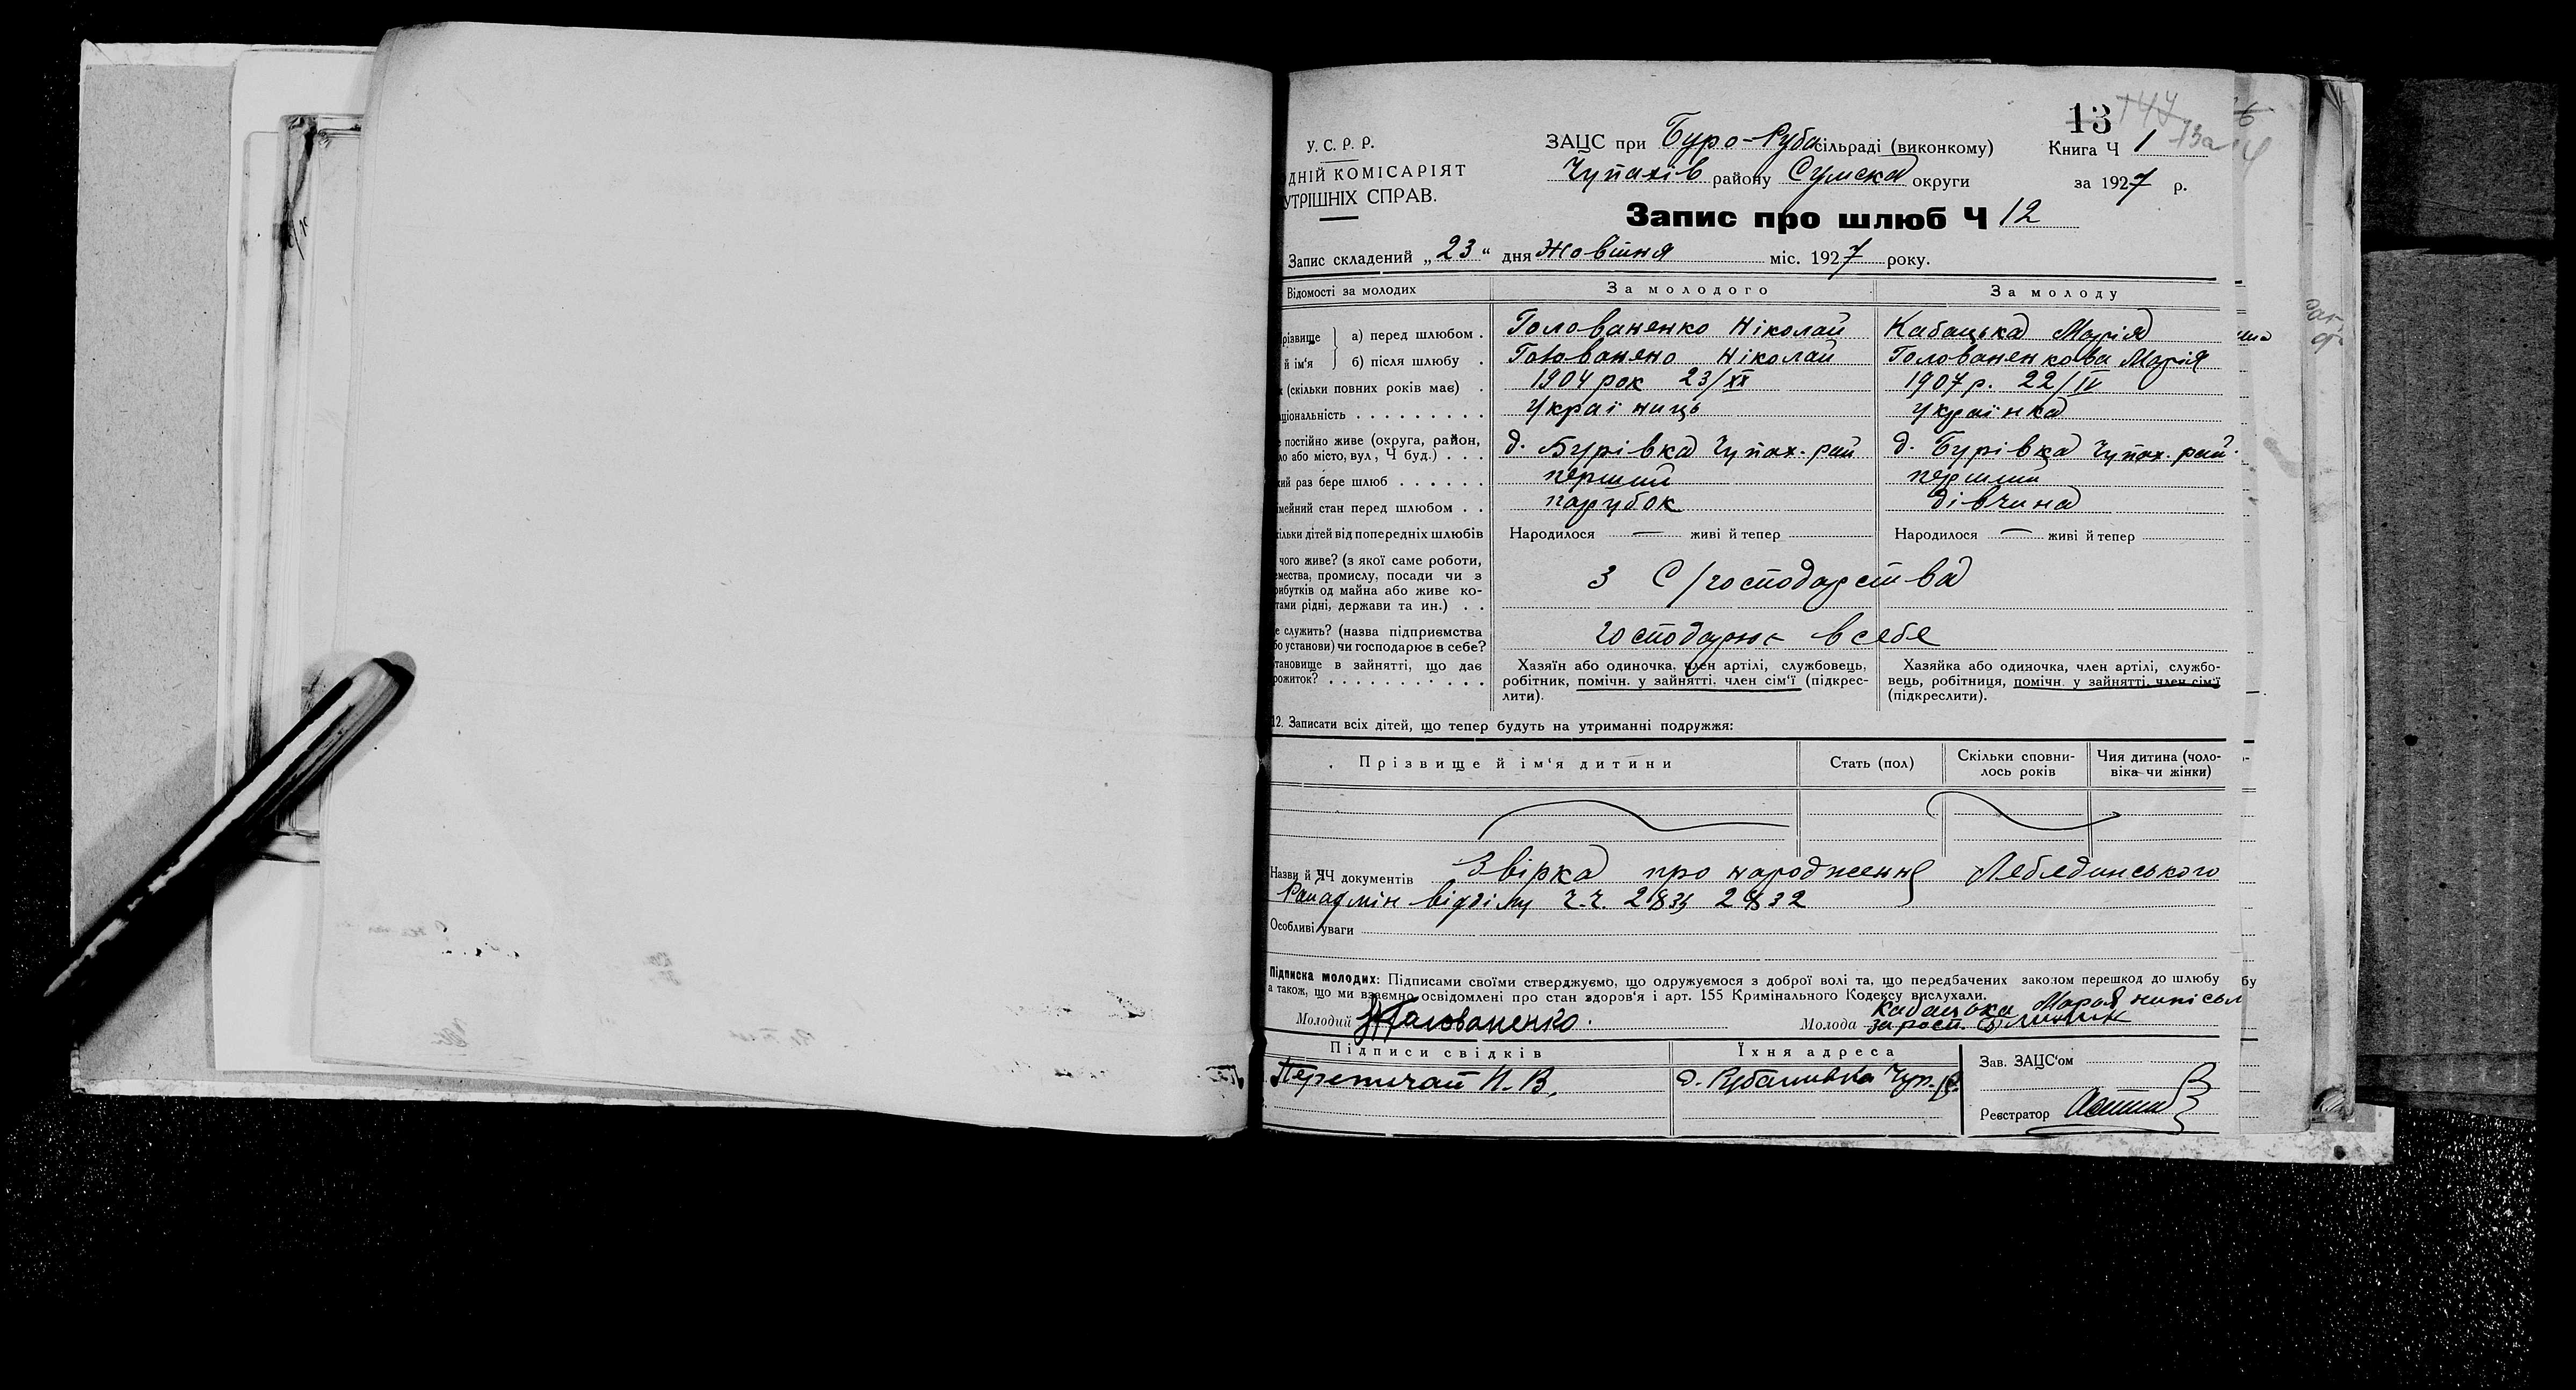 13
У. С. Р. Р.
ДНІЙ КОМІСАРІЯТ
УТРІШНІХ СПРАВ.
ЗАЦС при Буро-Руба сільраді (виконкому)
Книга Ч 1
Чупахів району Сумска округи
за 1927 р.
Запис про шлюб Ч 12
Запис складений „23“ дня Жовтня міс. 1927 року.
Відомості за молодих
За молодого
За молоду
різвище й ім'я
а) перед шлюбом .
Голованенко Ніколай
Кабацька Марія
б) після шлюбу .
Голованено Ніколай
Голованенкова Марія
(скільки повних років має) .
1904 рок 23/XX
1907 р. 22/IV
ціональність . . . . . . . . .
Україниць
українка
постійно живе (округа, район,
ло або місто, вул., Ч буд.) . . .
д. Бурівка Чупах. рай
д. Бурівка Чупах. рай.
кий раз бере шлюб . . . . . .
перший
перший
мейний стан перед шлюбом . .
парубок
дівчина
ільки дітей від попередніх шлюбів
Народилося — живі й тепер
Народилося — живі й тепер
чого живе? (з якої саме роботи,
емества, промислу, посади чи з
рибутків од майна або живе ко-
тами рідні, держави та ин.) . .
З С/господарства
е служить? (назва підприємства
бо установи) чи господарює в себе?
господарює в себе
тановище в зайнятті, що дає
рожиток? . . . . . . . . . . .
Хазяїн або одиночка, член артілі, службовець,
робітник, помічн. у зайнятті, член сім'ї (підкрес-
лити).
Хазяйка або одиночка, член артілі, службо-
вець, робітниця, помічн. у зайнятті, член сім'ї
(підкреслити).
12. Записати всіх дітей, що тепер будуть на утриманні подружжя:
Прізвище й ім'я дитини
Стать (пол)
Скільки сповни-
лось років
Чия дитина (чоло-
віка чи жінки)
Назви й ЧЧ документів Звірка про народження Лебединського
відділу Ч.Ч. 2832
Особливі уваги
Підписка молодих: Підписами своїми стверджуємо, що одружуємося з доброї волі та, що передбачених законом перешкод до шлюбу
а також, що ми взаємно освідомлені про стан здоров'я і арт. 155 Кримінального Кодексу вислухали.
Молодий Голованенко.
Молода Кабацька Марія
Підписи свідків
Їхня адреса
Зав. ЗАЦС'ом
Перепичай
д. Рубанивка
Реєстратор